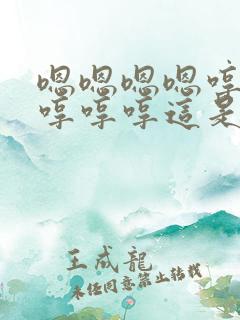 嗯嗯嗯嗯哼
哼哼哼這是
王成龍
未經同意禁止轉載